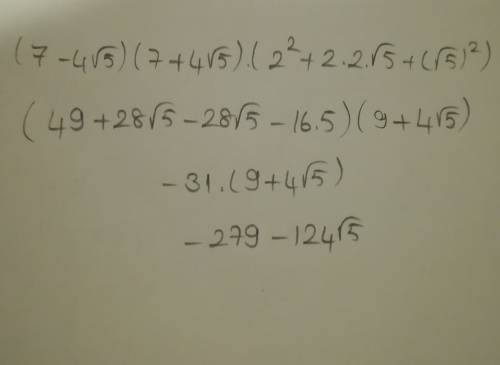 (7-4√5)(7+4√5).(2²+2.2.√5+(√5)²)
(49+28√5-28√5-16.5)(9+4√5)
-31.(9+4√5)
-279-124√5